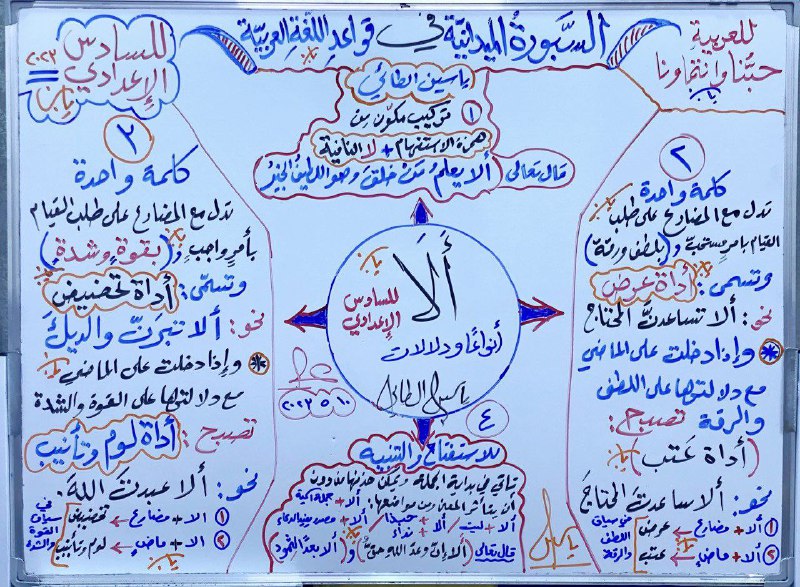 السَّبورةُ الميدانيّة في قواعدِ اللغةِ العربيّة
للعربية
حبّنا وانتماؤنا
للسادس
الإعدادي
٢٠٢٣
ياسين الطائي
١ تركيب مكوّن من
همزة الاستفهام + لا النافية
قال تعالى (ألا يعلمُ مَنْ خلقَ وهو اللطيفُ الخبيرُ)
٢
كلمة واحدة
تدل مع المضارع على طلب
القيام بأمرٍ مستحبّ و(بلطف ورقّة)
وتسمى: أداة عرض
نحو: ألا تساعدنَّ المحتاجَ
* وإذا دخلت على الماضي
مع دلالتها على اللطف
والرقة تصبح:
(أداة عَتب)
نحو: ألا ساعدتَ المحتاجَ
١ ألا + مضارع ← عرض
٢ ألا + ماضٍ ← عتب
في سياق
اللطف
والرقة
٣
كلمة واحدة
تدل مع المضارع على طلب القيام
بأمرٍ واجبٍ و(بقوةٍ وشدةٍ)
وتسمّى: أداة تحضيض
نحو: ألا تبرَّنَّ والديكَ
* وإذا دخلت على الماضي
مع دلالتها على القوة والشدة
تصبح: أداة لوم وتأنيب
نحو: ألا عبدتَ اللهَ.
١ ألا + مضارع ← تحضيض
٢ ألا + ماضٍ ← لوم وتأنيب
في
سياق
القوة
والشدة
أَلَا
للسادس
الإعدادي
أنواعًا ودلالات
ياسين الطائي
١٠ ٥ ٢٠٢٣
٤
للاستفتاح والتنبيه
تأتي في بداية الجملة ويمكن حذفها من دون
أن يتأثر المعنى ومن مواضعها: ألا + جملة اسمية
ألا + ليت / ألا + حبذا / ألا + نداء
قال تعالى (ألا إنّ وعدَ اللهِ حقٌّ) و(ألا بعدًا لثمود)